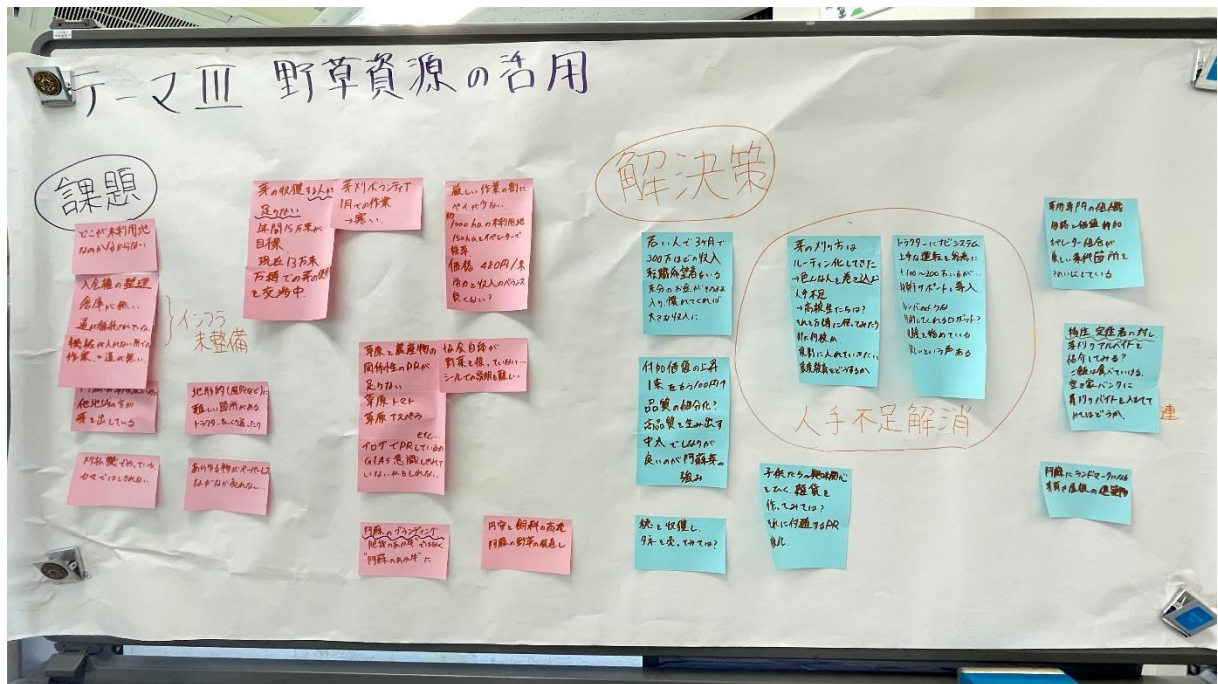 テーマⅢ 野草資源の活用
課題
どこが未利用地
なのか分からない
入会権の整理
倉庫が無い
道が舗装されていない
作業、道が無い
インフラ
未整備
他地域の方が
芽を出している
地形的(風向など)に
難しい箇所がある
刈払機でやっている
カマではしきれない
あらゆる物がペーパーレス
なかなか売れない
茅の収穫する人が
足りない
年間15万束が
目標
現在13万束
万博での茅の使用
を交渉中
茅刈りボランティア
1月での作業
→寒い
厳しい作業の割に
ペイが少ない
約1000haの未利用地
150haをオペレーターで
採草
価格 480円/束
労力と収入のバランス
良くない?
草原と農産物の
関係性のPRが
足りない
草原トマト
草原アスパラ
etc…
ブログでPRしているが
GIAS意識しきれて
いないかもしれない
協会自体が
野菜を扱っていない
シールでの説明も難しい
阿蘇のブランディング
肥後のあか牛ではなく
"阿蘇のあか牛"に
円安と飼料の高騰
阿蘇の野草の見直し
解決策
若い人で3ヶ月で
200万ほどの収入
転職希望者もいる
入り、慣れてくれば
大きな収入に
付加価値の上昇
1束をもう100円↑
品質の細分化?
高品質を生み出す
中太でしなりが
良いのが阿蘇茅の
強み
種を収穫し、
タネを売ってみては?
茅の刈り方は
ルーティン化してきた
→色んな人を巻き込む
人手不足
→高校生たちは?
それとも稼ぎに使ってみたり
規則に入れていきたい
農業教育をどうするか
トラクターにナビシステム
上手な運転を容易に
+100~200万いるが…
補助サポートも導入
ルンバのような
草刈してくれるロボット?
試験も始めている
欲しいという声ある
人手不足解消
子供たちの興味関心
をひく、雑貨を
作ってみては?
それに付随するPR
動画
オペレーター組合が
新しい条件箇所を
きれいにしている
移住、定住者に対し
茅刈りアルバイトを
紹介してみる?
ご飯は食べていける
空き家バンクに
茅刈りバイトも入れて
みてはどうか
連
阿蘇にランドマークになる
茅葺き屋根の建築物